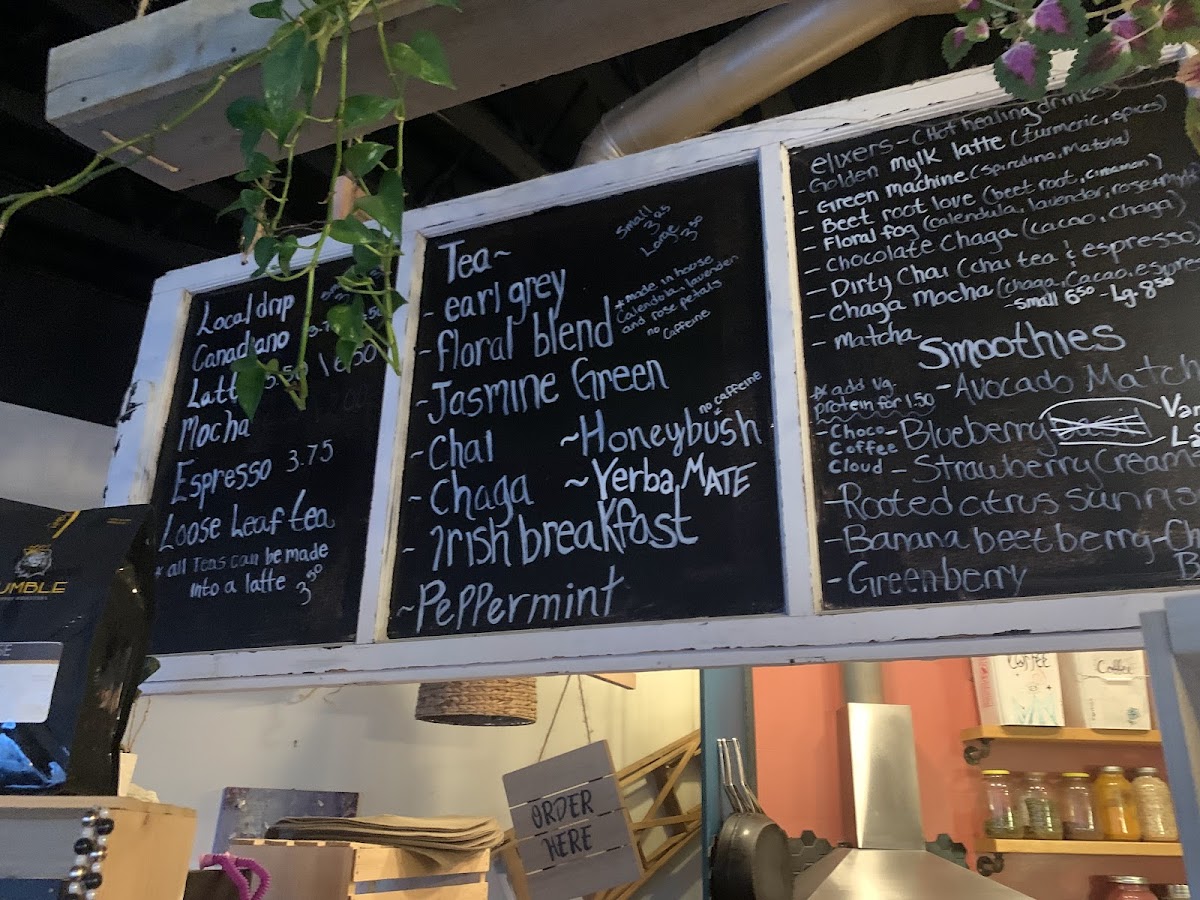 Local drip
Canadiano
Latt 5.50 | 6.50
Mocha
Espresso 3.75
Loose Leaf tea
* all Teas can be made
into a latte 3.50
Tea~
Small
3.25
Large
3.50
- earl grey
- floral blend
* made in house
Calendola, lavenden
and rose petals
no caffeine
- Jasmine Green
- Chai
~Honeybush
no caffeine
- Chaga
~Yerba MATE
- Irish breakfast
~Peppermint
elixers - (Hot healing drinks)
- Golden mylk latte (turmeric, spices)
- Green machine (Spirulina, Matcha)
- Beet root love (beet root, cinnamon)
- Floral fog (calendula, lavendor, rose
- Chocolate Chaga (cacao, Chaga)
- Dirty Chai (chai tea & espresso)
- Chaga Mocha (chaga, Cacao, espres
- small 6.50 - Lg. 8.50
- Matcha
Smoothies
* add Vg.
protein for 1.50
- Avocado Match
- Choco-
Coffee
Cloud
- Blueberry
Van
- Strawberry Creams
- Rooted citrus sunris
- Banana beet berry - Ch
- Greenberry
B
UMBLE
SE
ORDER
HERE
Coffee
Coffee